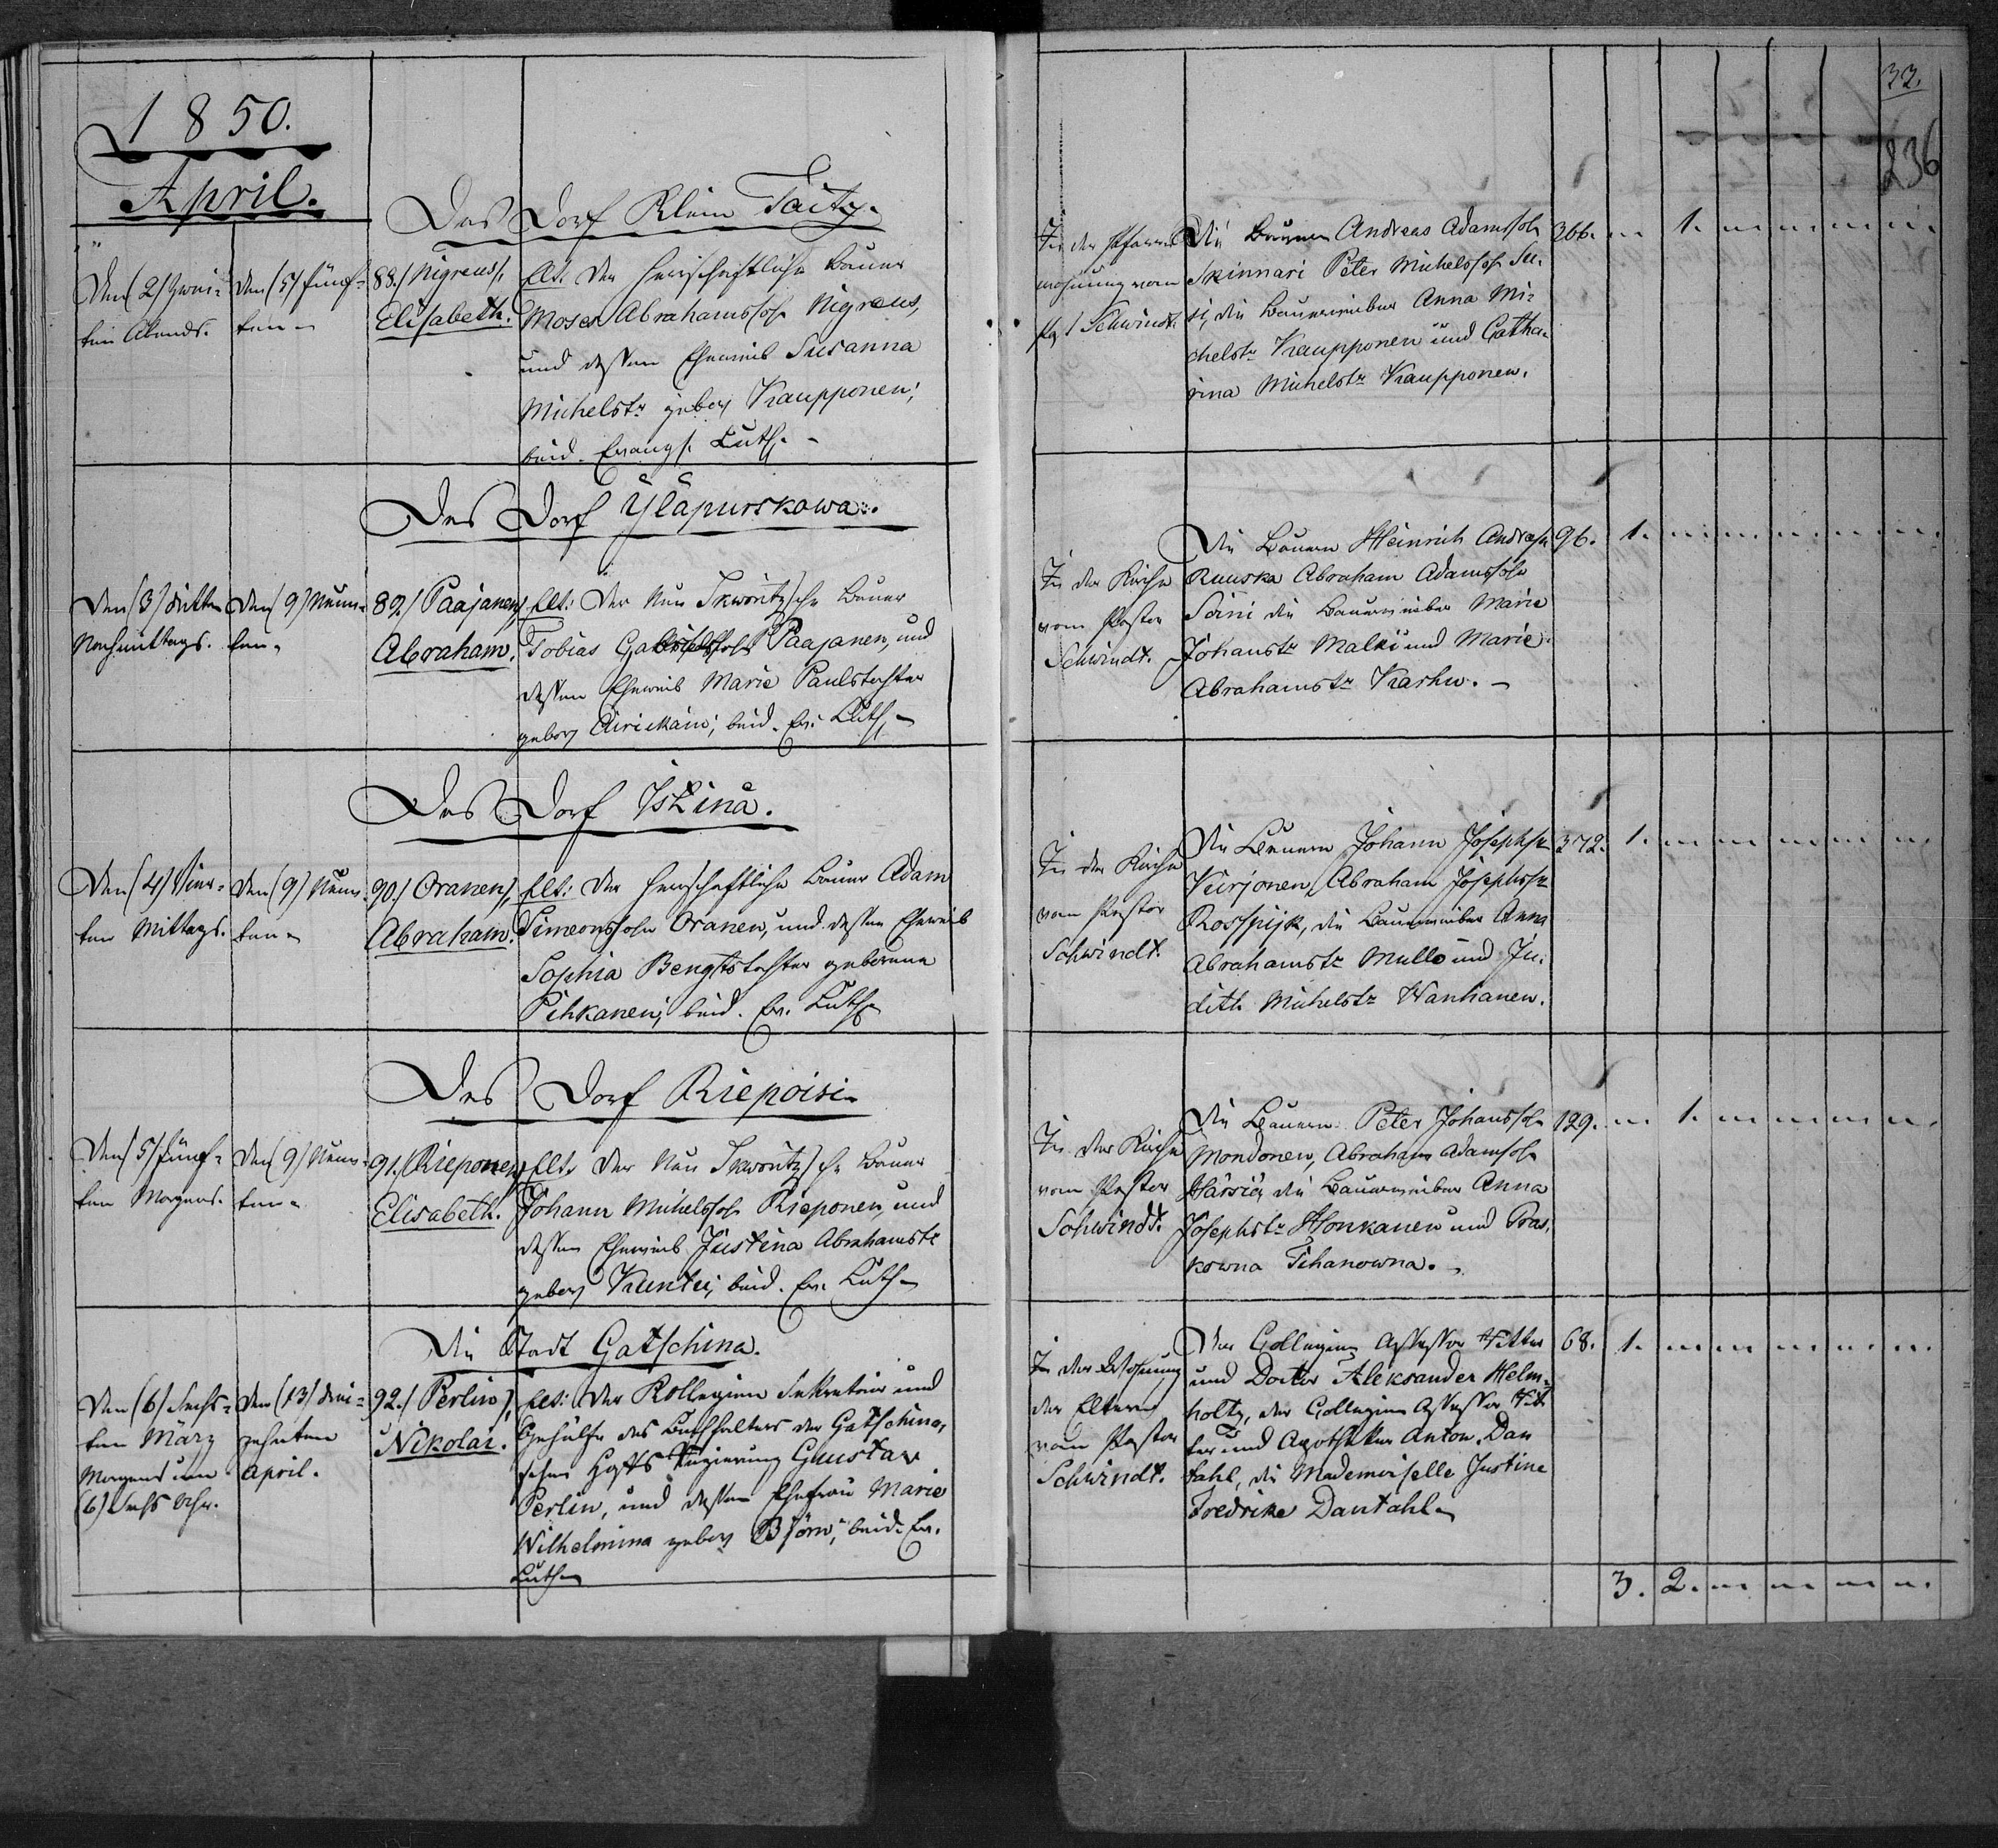 1850.
April.
Das Dorf Klein Taitz.
Den (2) zwei-
ten Abends.
den (5) fünf-
ten
88.) Nigreus),
Elisabeth.
Elt. Der herrschaftliche Bauer
Moses Abrahamssohn Nigreus,
und dessen Eheweib Susanna
Michelstr gebor Kaupponen;
beid. Evangl. Luth.
Das Dorf Yläpurskowa.
Den (3) dritten
Nachmittags.
Den (9) Neun-
ten
89.) Paajanen)
Abraham.
Elt: Der Neu Skworitzsche Bauer
Tobias Paajanen, und
dessen Eheweib Marie Paulstochter
gebor beid. Ev. Luth.
Das Dorf Iskina.
Den (4) Vier-
ten Mittags.
Den (9) Neun
ten
90.) Oranen),
Abraham.
Elt: Der herrschaftliche Bauer Adam
Simeonssohn Oranen, und dessen Eheweib
Sophia Bengtstochter geborene
Pihkanen; beid. Ev. Luth.
Das Dorf Riepoisi
Den (5) fünf-
ten Morgens.
Den (9) Neun-
ten
91.) Rieponen)
Elisabeth.
Elt. Der Neu Skworitzsche Bauer
Johann Michelssohn Rieponen, und
dessen Eheweib Justina Abrahamstr
gebor Kuntu; beid. Ev. Luth
Die Stadt Gatschina.
Den (6) Sechs-
ten März
Morgens um
(6) Sechs Uhr.
Den (13) drei-
zehnten
April.
92.) Perlin),
Nikolai.
Elt: Der Kollegien Sekretair und
Gehülfe des Buchhalters der Gatschina,
schen Hofts Regierung Gustav
Perlin, und dessen Ehefrau Marie
Wilhelmina gebor Björn; beide Ev.
Luth
33.
236
In der Pfarr
wohnung vom
Schwindt.
Die Bauern Andreas Adamssohn
Skinnari Peter Michelssohn Su-
si, die Bauerweiber Anna Mi-
chelstr Kaupponen und Catha-
rina Michelstr Kaupponen.
366. 1.
In der Kirche
vom Pastor
Schwindt.
Die Bauern Heinrich Andress
Ruuska Abraham Adamssohn
Soini die Bauerweiber Marie
Johanstr Malki und Marie
Abrahamstr Karhu.
96. 1.
In der Kirche
vom Pastor
Schwindt.
Die Bauern Johann Josephss
Kurjonen, Abraham Josephss
die Bauerweiber Anna
Abrahamstr Mullo und Ju-
dith Michelstr Wanhanen.
372. 1.
In der Kirche
vom Pastor
Schwindt.
Die Bauern Peter Johanssohn
Mondonen, Abraham Adamsohn
Härsiä, die Bauerweiber Anna
Josephstr Honkanen und Pras-
kowna Tihanowna.
129. 1.
In der Wohnung
der Eltern
vom Pastor
Schwindt.
Der Collegien Assessor Ritter
und Doctor Aleksander Helm-
holtz, der Collegien Assessor Rit
ter und Apotheker Anton Dan
tahl, die Mademoiselle Justine
Fredrike Dantahl
68. 1.
3. 2.